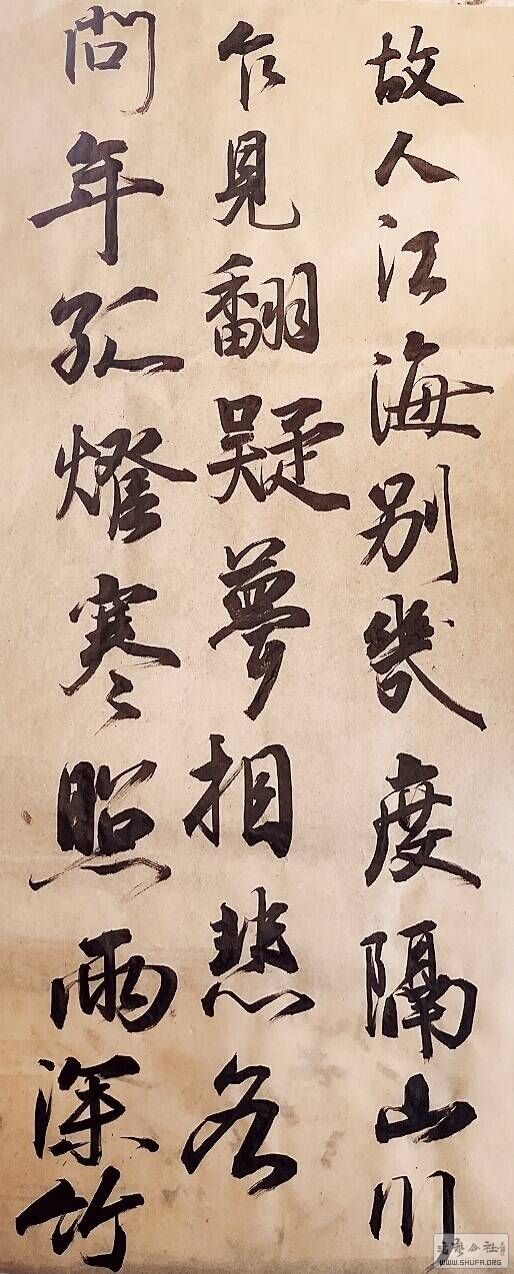 故人江海別幾度隔山川
乍見翻疑夢相悲各
問年孤燈寒照雨深竹
WWW.SHUFA.ORG